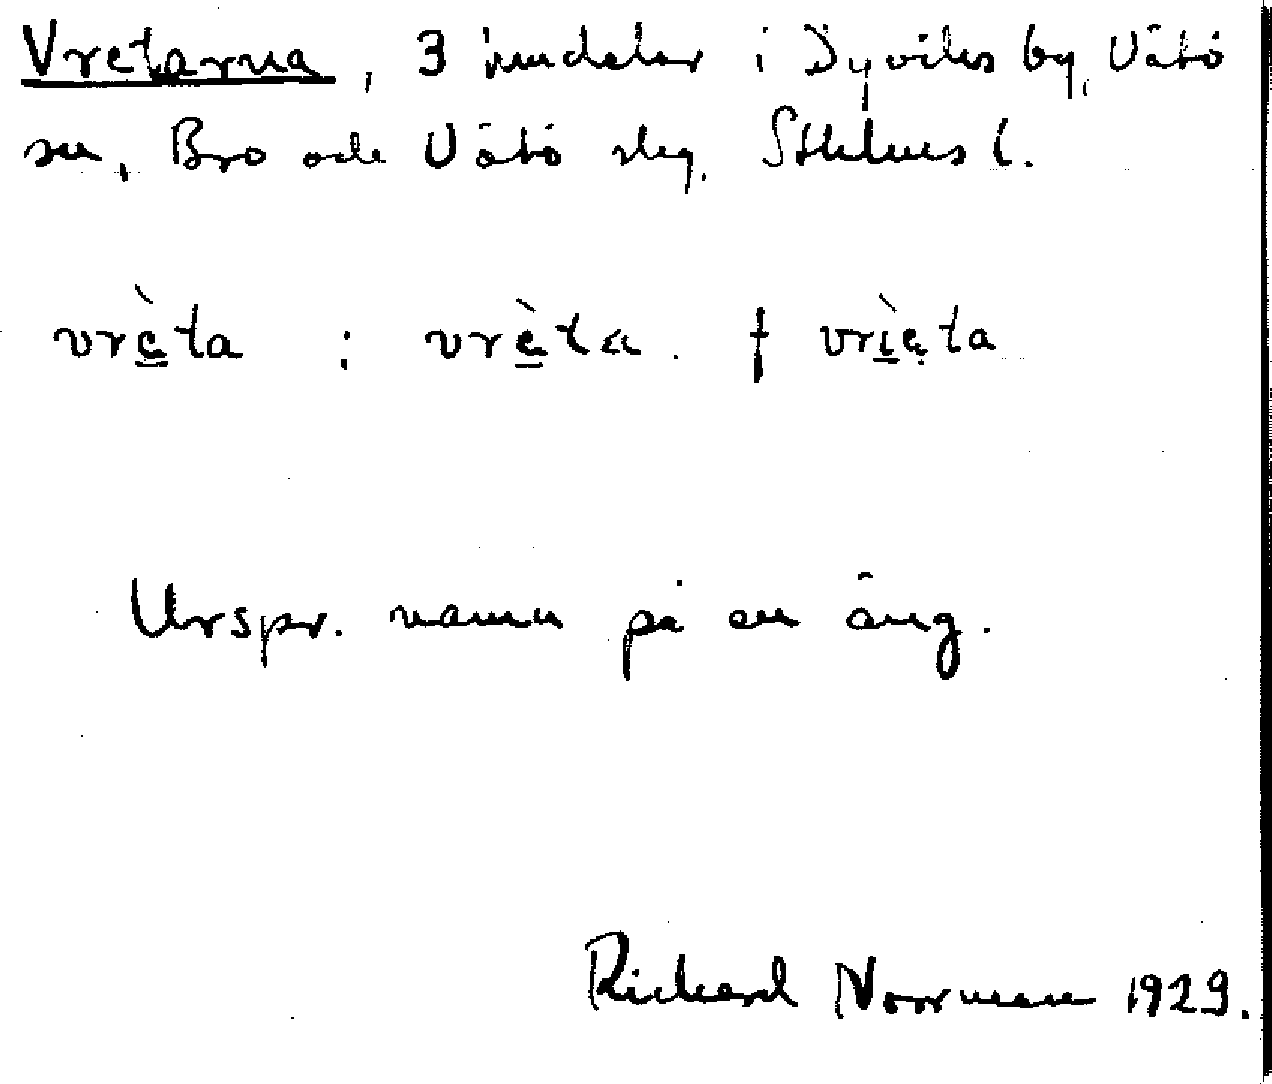 Vretarna, 3 jmdelar i Dyviks by, Vätö
sn, Bro och Vätö skg. Sthlms l.
vrè̱ta : vrè̱ta. † vrì̱ẹta
Urspr. namn på en äng.
Rickard Norrman 1929.